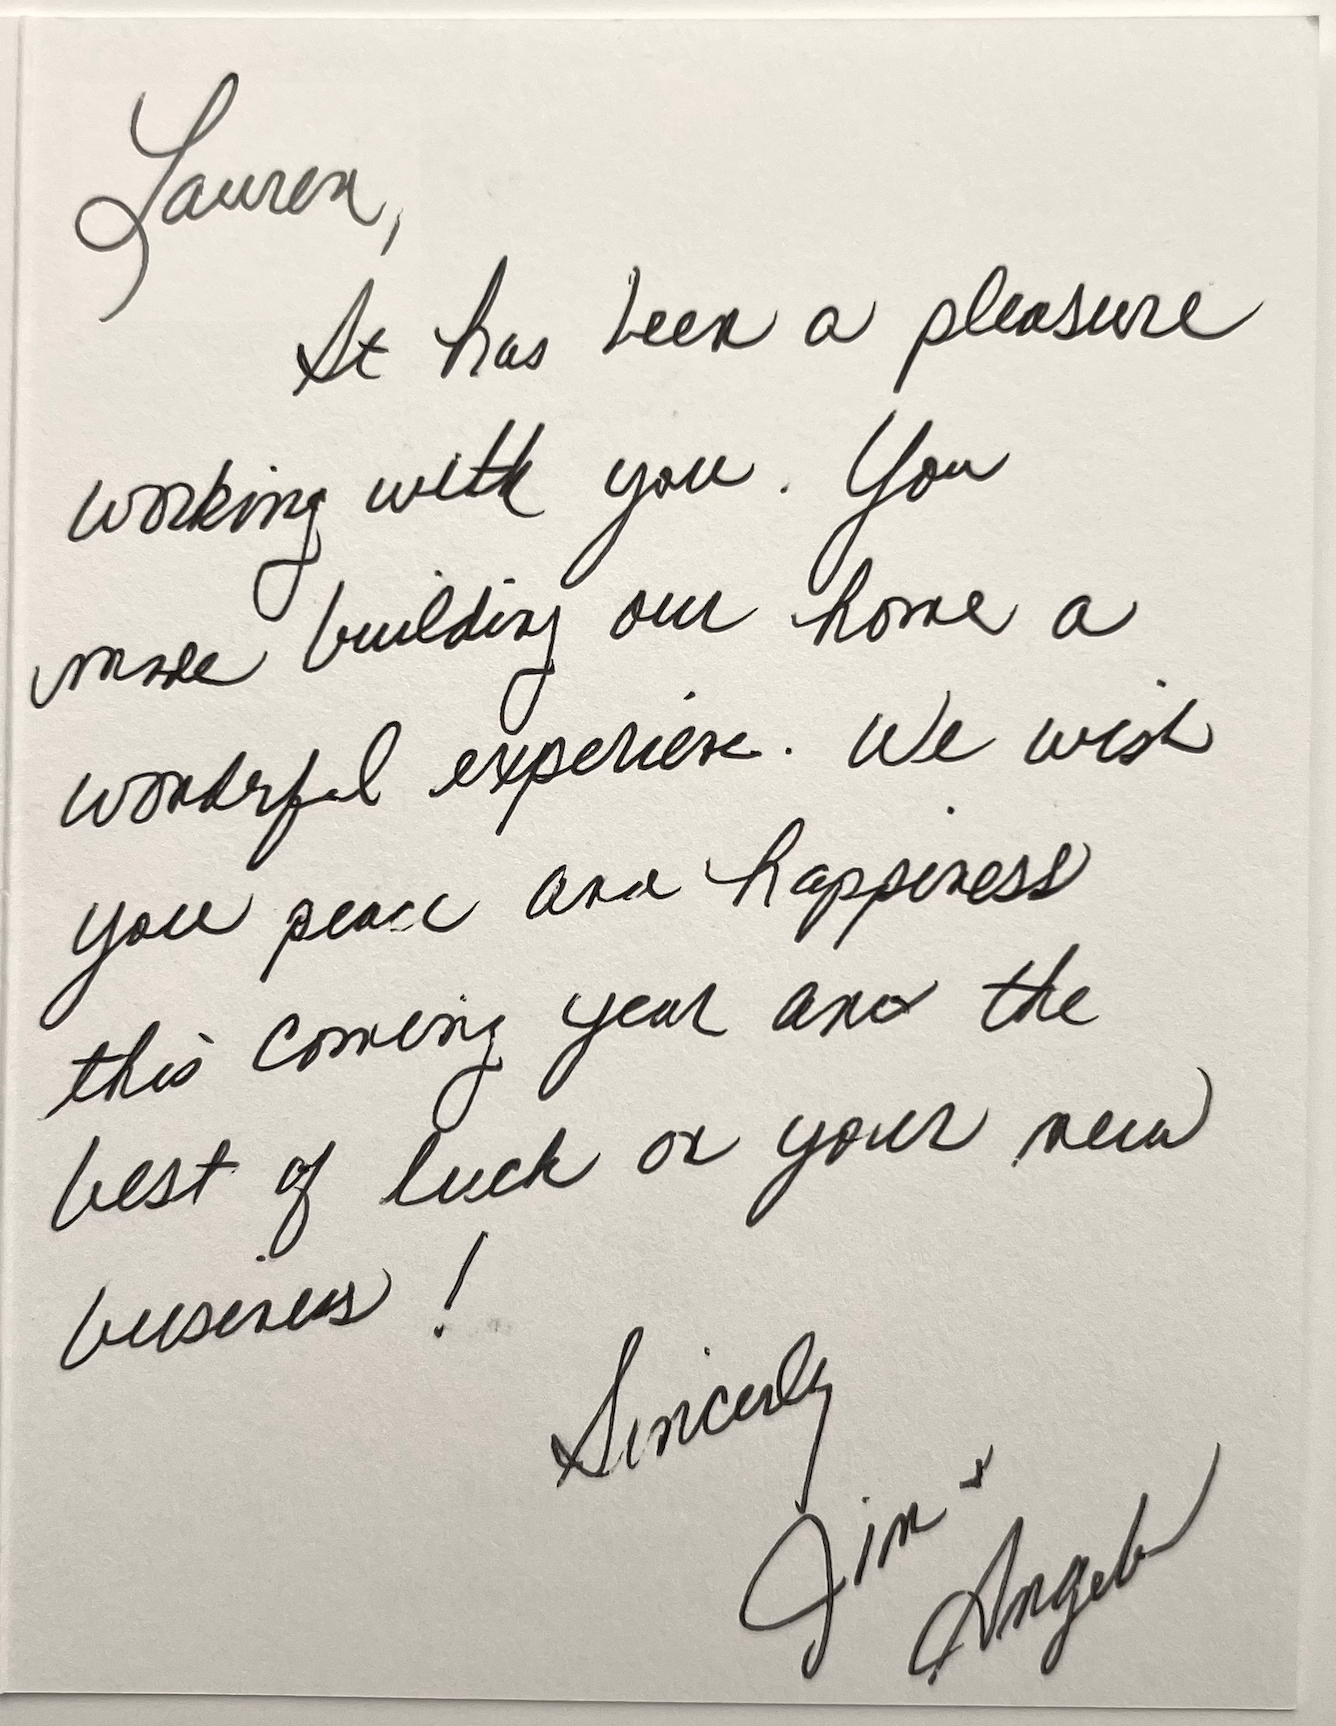 Lauren,
It has been a pleasure
working with you. You
made building our home a
wonderful experience. We wish
you peace and happiness
this coming year and the
best of luck on your new
business!
Sincerly
Jim +
Angela